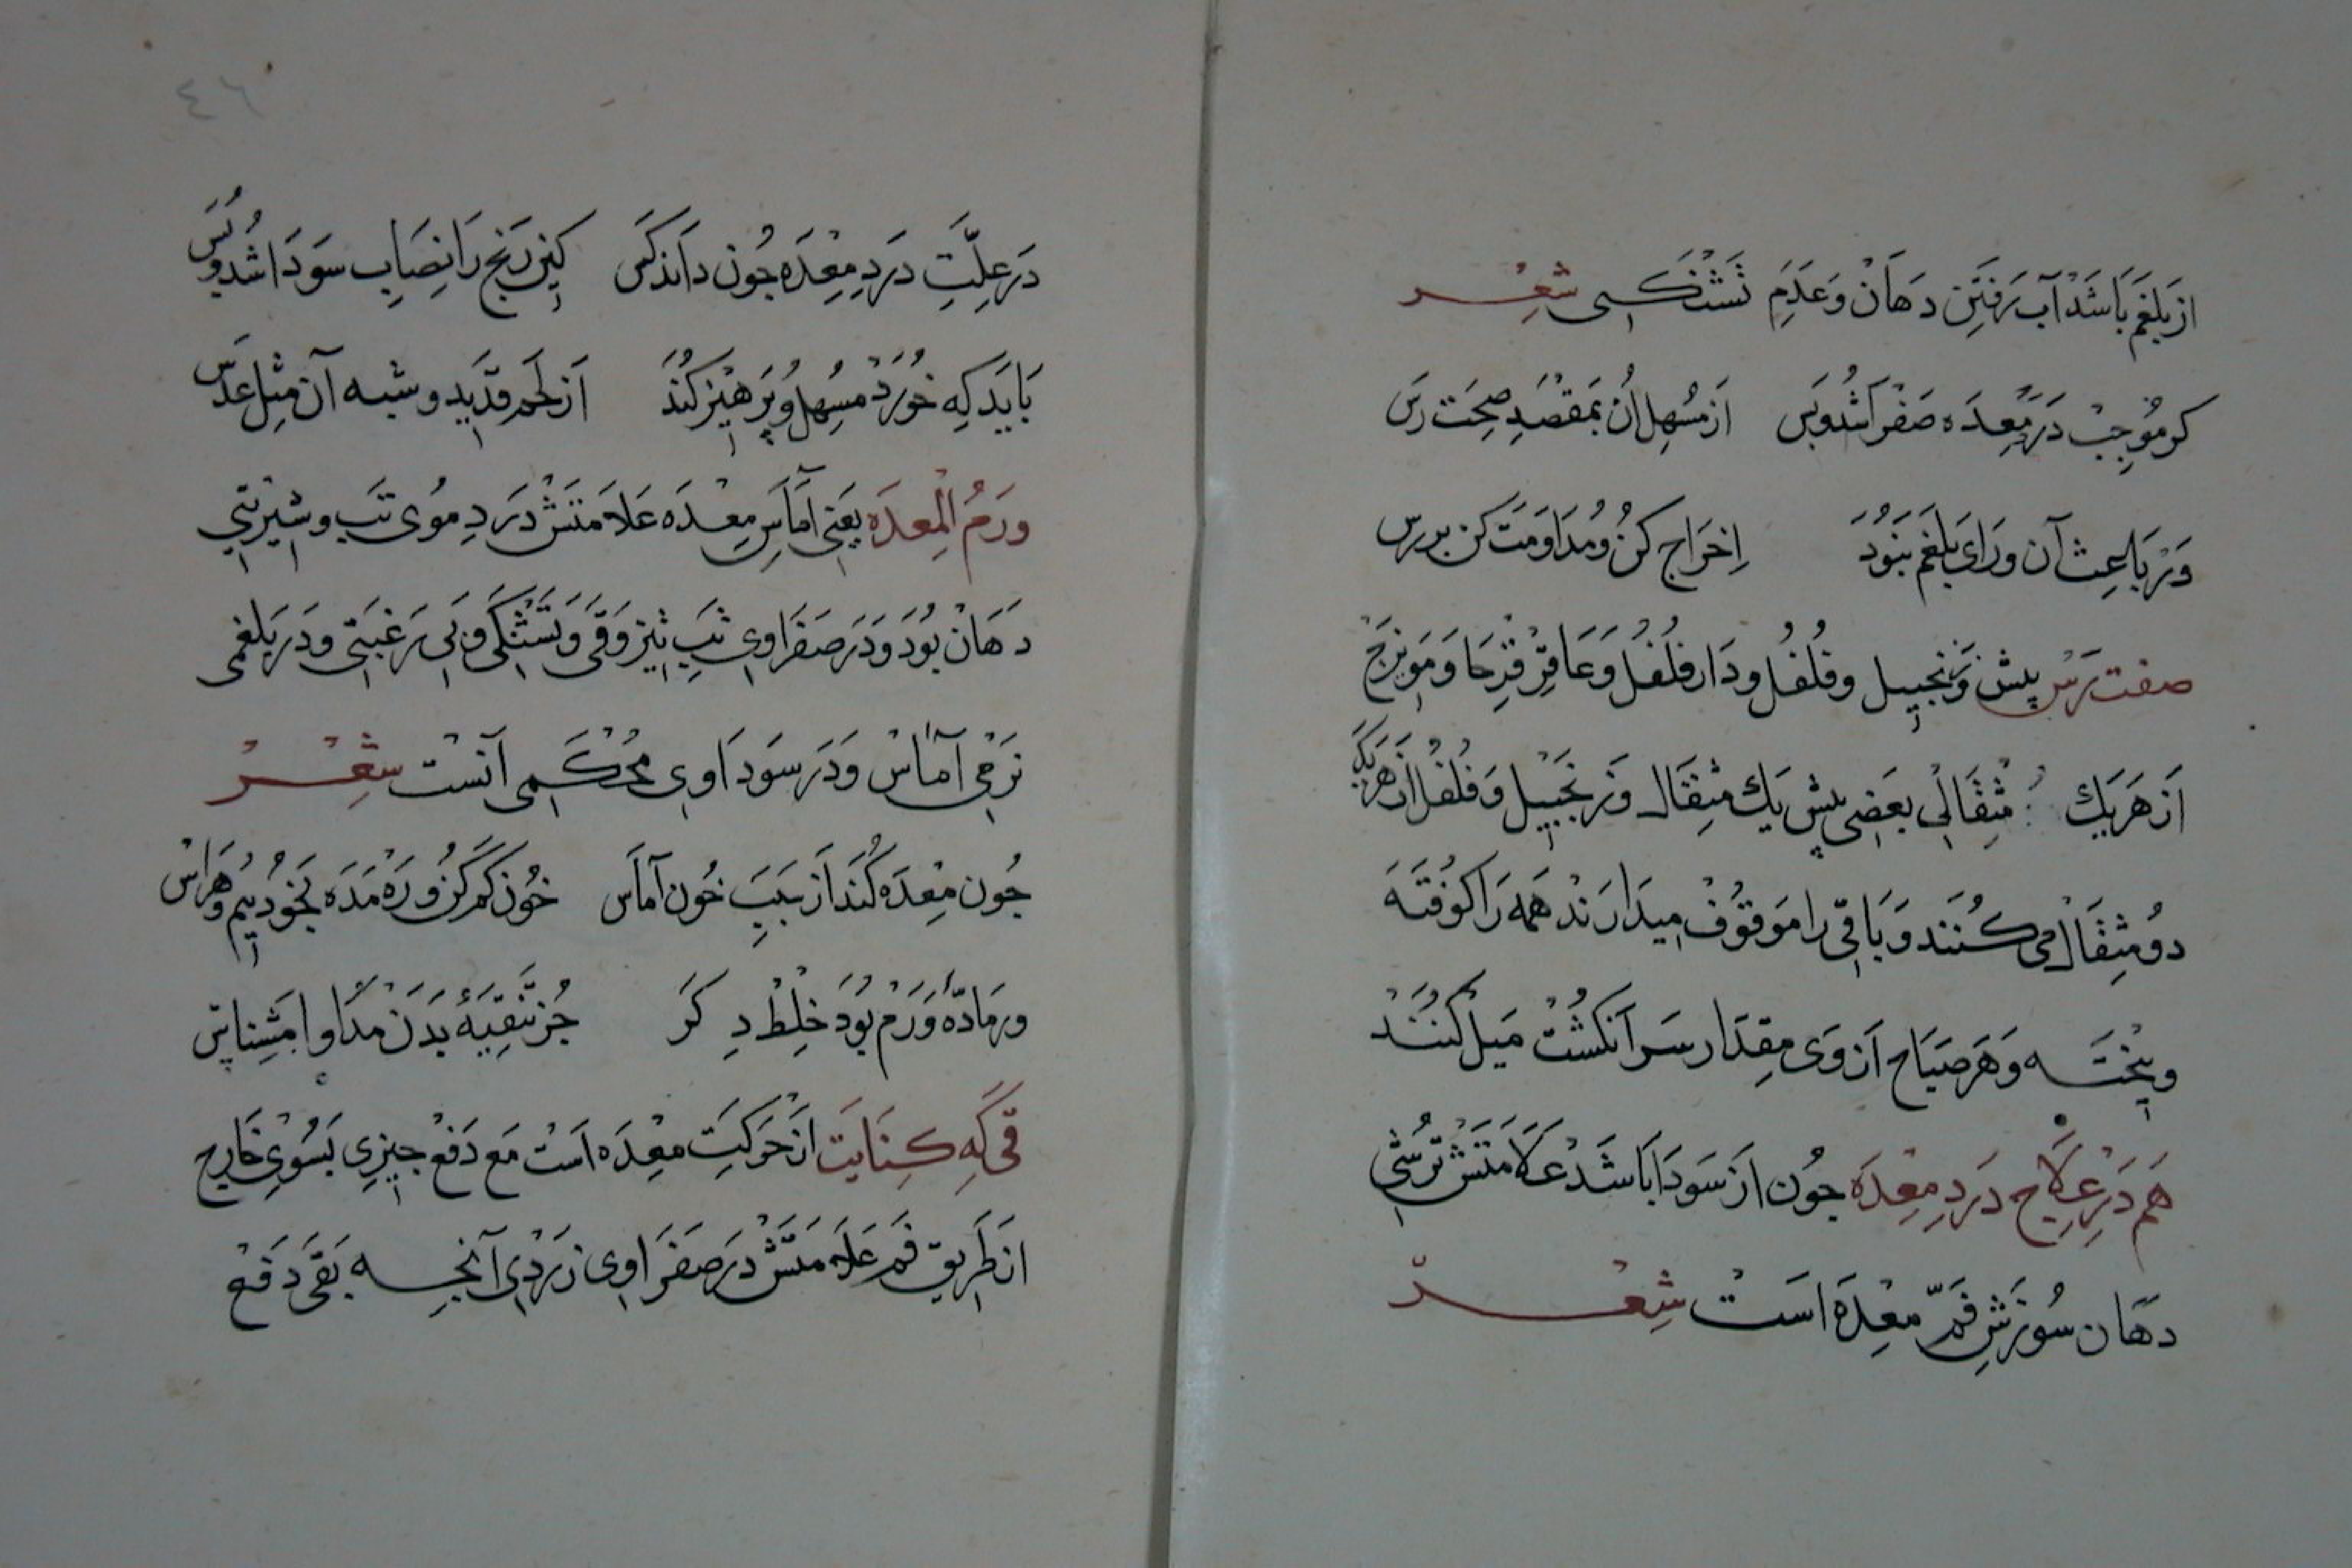 از بلغم باشد آب رفتن دهان و عدم تشنکی شعر
کر موجب درد معده صفرا شد و بس از مسهل ان بمقصد صحت رس
ور باعث آن ورای بلغم نبود اخراج کن و مداومت کن بر برس
صفت برس پیش و زنجبیل و فلفل و دار فلفل و عاقر قرحا و مویزج
از هر یك مثقالی بعضی پیش یك مثقال و زنجبیل و فلفل از هر یك
دو مثقال می کنند و باقی را موقوف میدارند همه را کوفته
و بیخته و هر صباح از وی مقدار سر انکشت میل کنند
هم در علاج درد معده جون از سودا باشد علامتش ترشی
دهان سوزش فم معده است شعر
٤٦
در علت درد معده جون داند کس کین رنج ز انصاب سودا شد و بس
باید که خورد مسهل و پرهیز کند از لحم قدید و شبه آن مثل عدس
ورم المعده یعنی آماس معده علامتش در دموی تب و شیرینی
دهان بود و در صفراوی تب تیز و قی و تشنکی و بی رغبتی و در بلغمی
نرمی آماس و در سوداوی محکمی آنست شعر
جون معده کند از سبب خون آماس خون کم کن و ره مده بخود بیم و هراس
ور ماده ورم بود خلط دکر جز تنقیه بدن مداوا مشناس
قی که کنایت از حرکت معده است مع دفع جیزی بسوی خارج
از طریق فم علامتش در صفراوی زردی آنجه بقی دفع